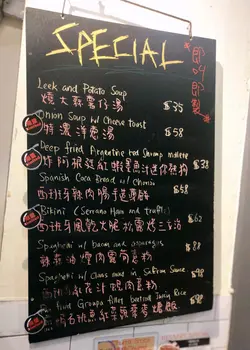 SPECIAL
即叫即製
Leek and Potato Soup
燒大蒜薯仔湯 $35
Onion Soup w/ Cheese toast
特濃洋葱湯 $58
Deep fried Argentine red Shrimp
炸阿根廷紅蝦 $38
Spanish Coca Bread w/ Chorizo
西班牙辣肉腸 $68
Bikini (Serrano Ham and truffle)
西班牙風乾火腿松露烤三文治 $62
Spaghetti w/ bacon and asparagus
煙肉露筍意粉 $88
Spaghetti w/ Clams meat in Saffron Sauce
紅花汁蜆肉意粉 $98
Garoupa fillet Rice
石斑魚 飯 $98